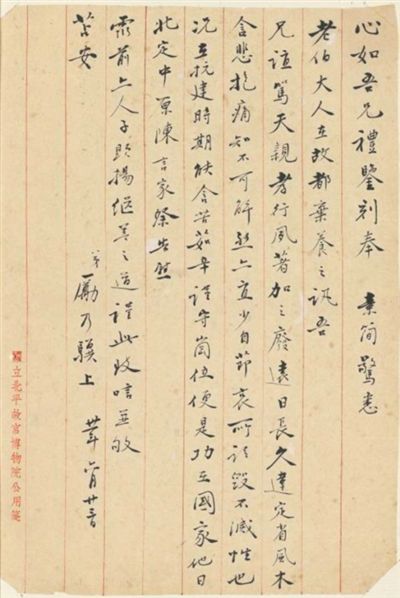 心如吾兄禮鑒刻奉　素簡驚悉
老伯大人在故都棄養之訊吾
兄誼篤天親孝行夙著加之廢遠日長久違定省風木
含悲抱痛知不可解然亦宜少自節哀所謂毀不滅性也
況在抗建時期飲含苦茹辛謹守崗位便是功在國家他日
北定中原陳言家祭告慰
靈前亦人子顯揚繼善之道謹此敬唁並敬
苦安
弟 勵乃驥上 廿三日
國立北平故宮博物院公用箋